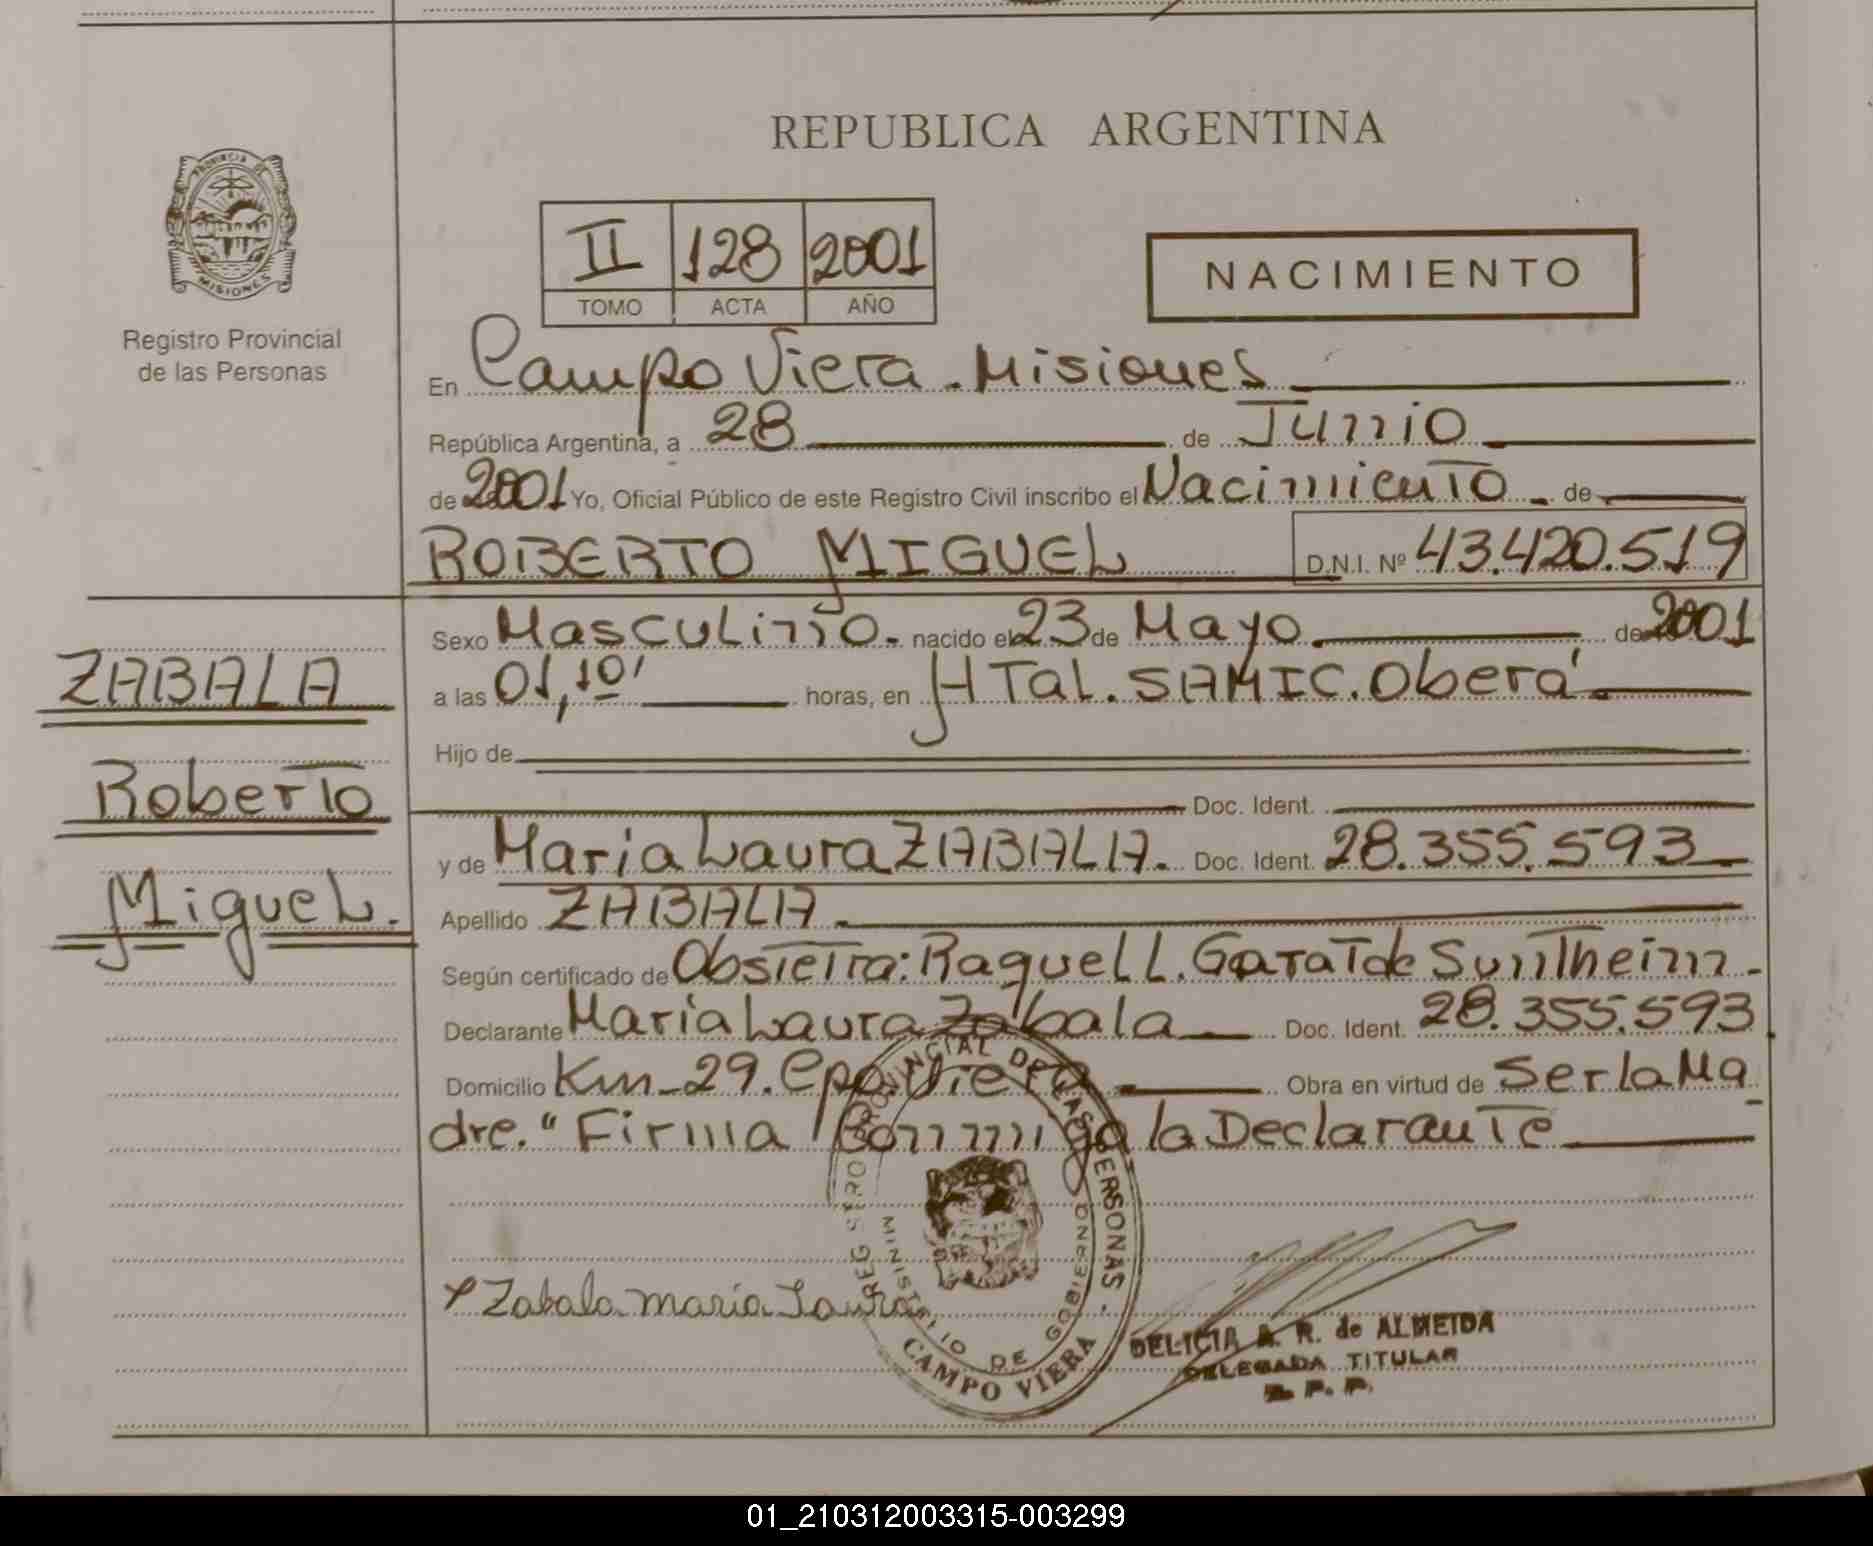 REPUBLICA ARGENTINA
PROVINCIA DE
MISIONES
Registro Provincial
de las Personas
II 128 2001
TOMO ACTA AÑO
NACIMIENTO
En Campo Viera - Misiones
República Argentina, a 28 de Junio
de 2001 Yo, Oficial Público de este Registro Civil inscribo el Nacimiento de
ROBERTO MIGUEL D.N.I. Nº 43.420.519
Sexo Masculino.- nacido el 23 de Mayo de 2001
a las 01,10' horas, en HTal. SAMIC. Oberá
Hijo de
Doc. Ident.
y de Maria Laura ZABALA. Doc. Ident. 28.355.593
Apellido ZABALA
Según certificado de Obstetra: Raquel L. Garat de Sunthein.
Declarante Maria Laura Zabala Doc. Ident. 28.355.593
Domicilio Km-29. Cpo. Viera Obra en virtud de Ser la Ma
dre." Firma Conmigo la Declarante
ZABALA
Roberto
Miguel.
x Zabala maria Laura
REG PROVINCIAL DE LAS PERSONAS
MINISTERIO DE GOBIERNO
CAMPO VIERA
DELICIA A. R. de ALMEIDA
DELEGADA TITULAR
R. P. P.
01_210312003315-003299